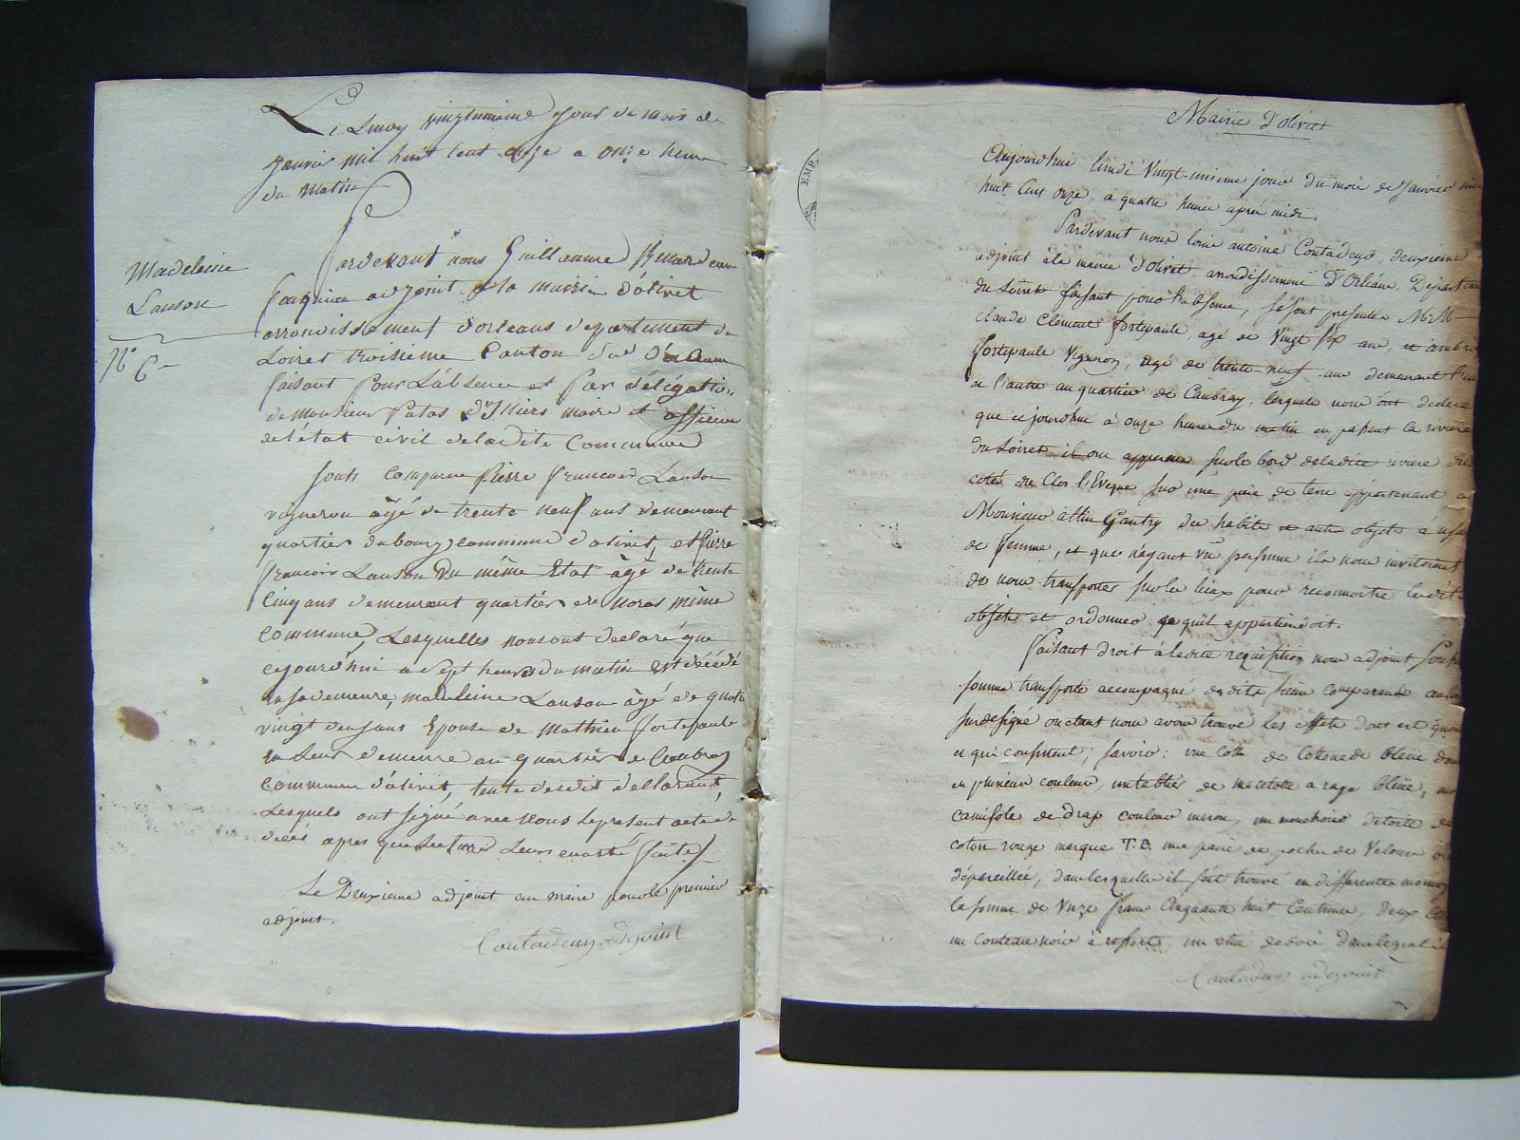 Le Lundy vingtunieme Jour du mois de
janvier mil huit Cent onze a onze heure
du Matin
Madeleine
Lanson
N° 6
Pardevant nous Guillaume
adjoint a la mairie d'olivet
arrondissement d'orleans departement du
Loiret troisieme Canton Sud d'orleans
faisant pour L'absence et par délégation
de monsieur Patas D'Illiers maire et officier
de l'état civil de ladite Commune
Sont Comparu Pierre francois Lanson
vigneron âgé de trente neuf ans demeurant
quartier du bourg commune d'olivet, et Pierre
francois Lanson du même Etat âgé de trente
Cinq ans demeurant quartier de même
Commune, Lesquelles nous ont declaré que
cejourd'hui a sept heures du matin est décédé
en sa demeure, madeleine Lanson âgé de quatre
vingt deux ans Epouse de Mathieu fortepaule
en Leur demeure au quartier de Caubray
Commune d'olivet, desdit declarant,
Lesquels ont signé avec nous le present acte de
décès apres que Lecture Leur en a été faite
Le Deuxieme adjoint au maire pour le premier
adjoint.
Contadeny adjoint
EMP
Mairie d'olivet
Aujourdhui lundi Vingt-unieme jour du mois de Janvier mil
huit Cent onze, a quatre heures après midi.
Pardevant nous louis antoine Contadeny, deuxieme
adjoint à la mairie d'olivet arrondissement D'Orléans, Departement
du Loiret faisant pour l'absence, se sont presentés M.M.
claude Clément fortepaule, agé de Vingt six ans et ambroise
fortepaule Vigneron, agé de trente-neuf ans demeurant l'un
et l'autre au quartier de Caubray, lesquels nous ont declaré
que cejourdhui à onze heures du matin en passant la riviere
du Loiret il ont apperçu sur le bord de ladite riviere du
coté du Clos l'Eveque sur une piece de terre appartenant a
Monsieur Gautry des habits et autres objets a usage
de femme, et que n'ayant vu personne ils nous invitoient
de nous transporter sur les lieux pour reconnoitre lesdits
objets et ordonner ce qu'il appartiendroit.
Faisant droit à ladite requisition nous adjoint
sommes transporté accompagné desdits sieurs comparants au lieu
susdesigné ou étant nous avons trouvé les effets dont est question
et qui consistent, savoir: une Cotte de Cotonade bleue
en plusieurs couleurs, un tablier de a raye bleue, une
camisole de drap couleur un mouchoir de toile de
coton rouge marque T.B. une paire de poches de Velours
dépareillée, dans lesquelles il s'est trouvé en differentes monnoyes
la somme de Unze francs Cinquante huit Centimes, deux
un Couteau noir à ressort, un etui de bois dans lequel
Contadeny adjoint